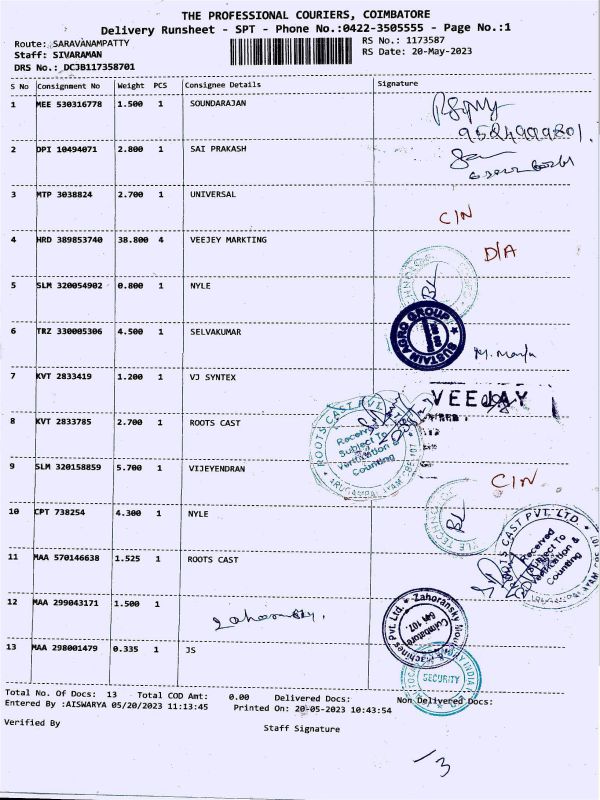 THE PROFESSIONAL COURIERS, COIMBATORE
Delivery Runsheet - SPT - Phone No.:0422-3505555 - Page No.:1
Route: SARAVANAMPATTY
Staff: SIVARAMAN
DRS No.: DCJB117358701
RS No.: 1173587
RS Date: 20-May-2023
S No Consignment No Weight PCS Consignee Details Signature
1 MEE 530316778 1.500 1 SOUNDARAJAN
9524999801.
2 DPI 10494071 2.800 1 SAI PRAKASH
3 MTP 3038824 2.700 1 UNIVERSAL
C/N
4 HRD 389853740 38.800 4 VEEJEY MARKTING
D/A
5 SLM 320054902 0.800 1 NYLE
BL
SUSTAIN AGRO GROUP
6 TRZ 330005306 4.500 1 SELVAKUMAR
7 KVT 2833419 1.200 1 VJ SYNTEX
VEEJAY
8 KVT 2833785 2.700 1 ROOTS CAST
ROOTS CAST PVT. LTD.
Received
Subject To
Verification &
Counting
9 SLM 320158859 5.700 1 VIJEYENDRAN
C/N
10 CPT 738254 4.300 1 NYLE
BL
11 MAA 570146638 1.525 1 ROOTS CAST
ROOTS CAST PVT. LTD.
Received
Subject To
Verification &
Counting
12 MAA 299043171 1.500 1
Zahoransky
Machines Pvt. Ltd.
Coimbatore
641 107.
13 MAA 298001479 0.335 1 JS
SECURITY
Total No. Of Docs: 13 Total COD Amt: 0.00 Delivered Docs: Non Delivered Docs:
Entered By :AISWARYA 05/20/2023 11:13:45 Printed On: 20-05-2023 10:43:54
Verified By
Staff Signature